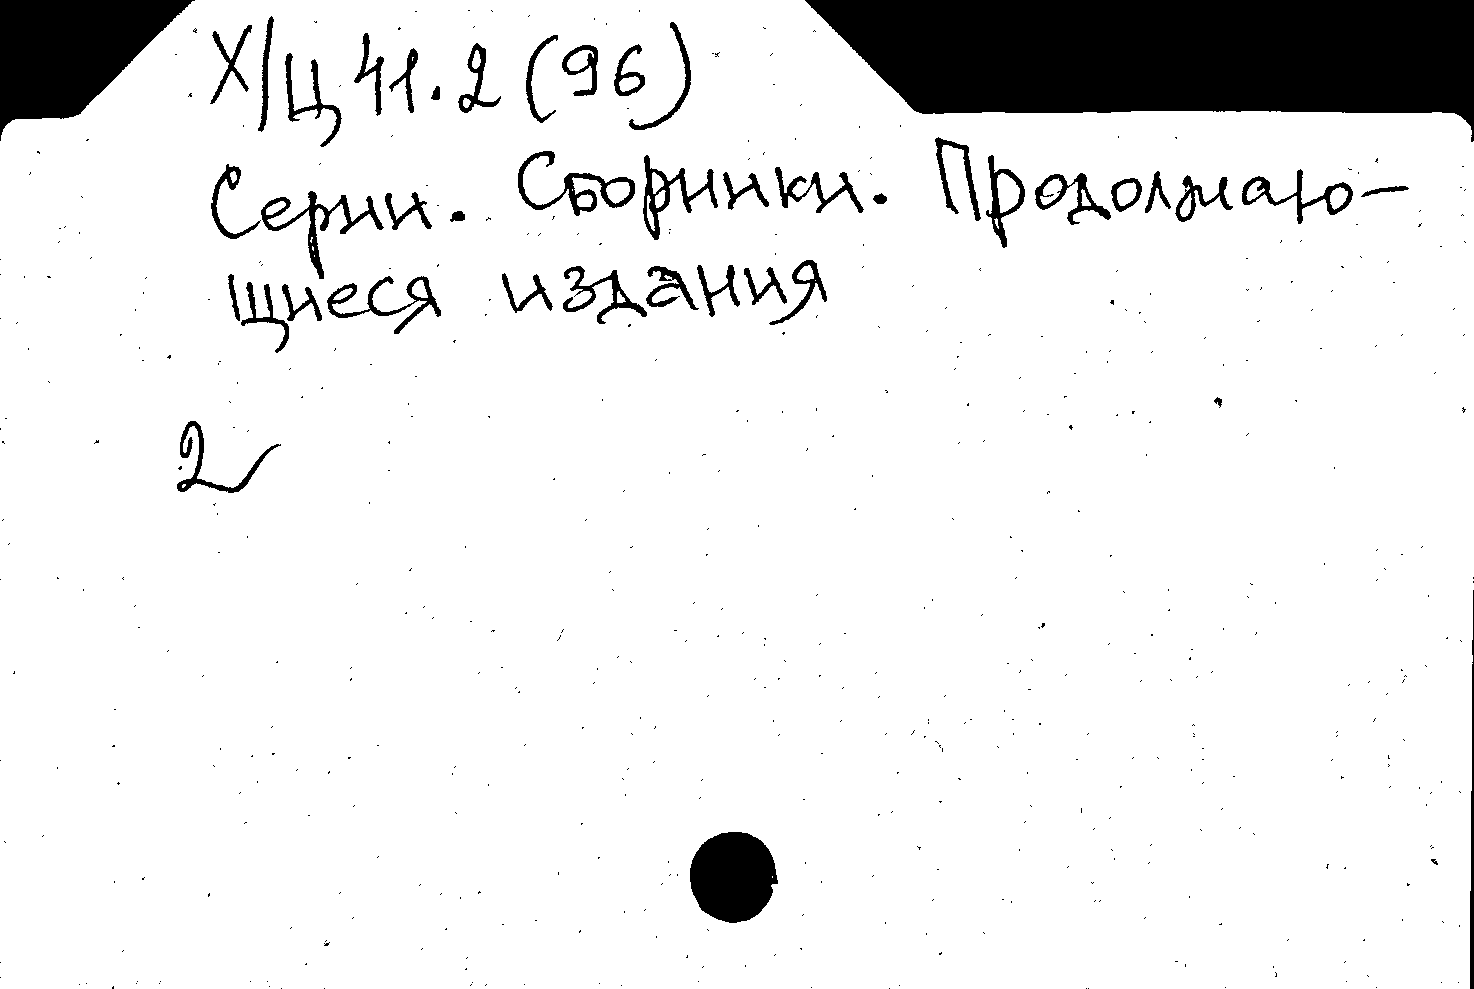 Х/Ц 41.2 (96)
Серии. Сборники. Продолжаю-
щиеся издания
2